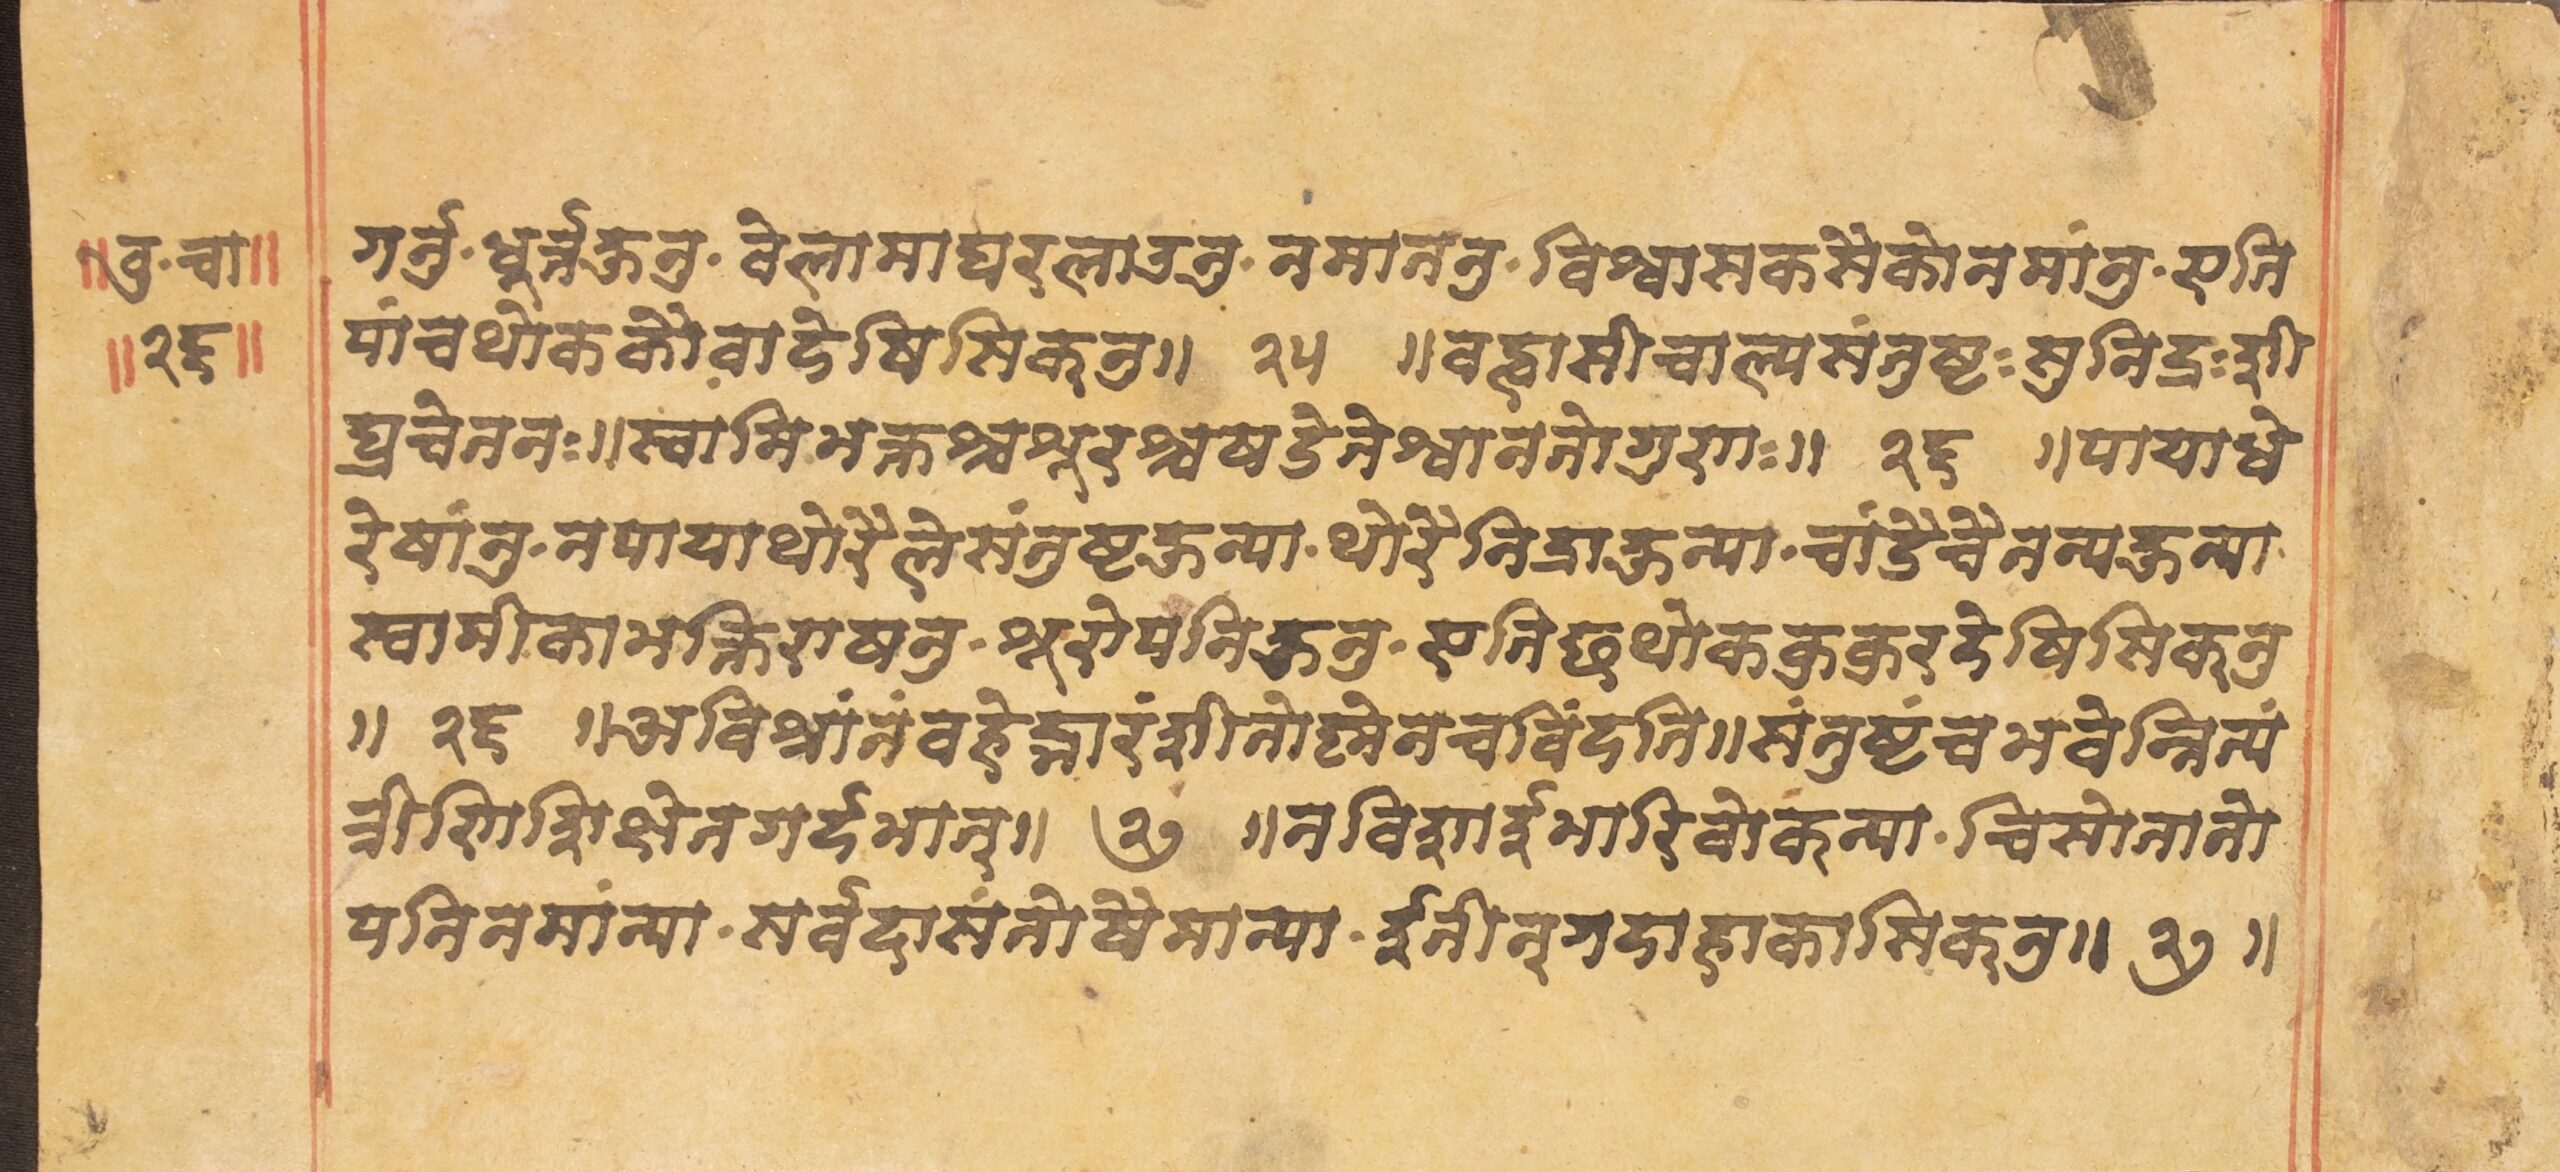 ॥वृ·चा॥
॥२६॥
गर्नु·धुर्त्तहुनु·वेलामाघरलाउनु·नमातनु·विश्वासकसैकोनमांनु·एति
पांचथोककौवादेषिसिक्नु॥ २५ ॥वह्वासीचाल्पसंतुष्टः सुनिद्रः शी
घ्रचेतनः॥स्वामिभक्तश्चशूरश्चषडेतेश्वानतोगुणाः॥ २६ ॥पायाधे
रेषांनु·नपायाथोरैलेसंतुष्टहुन्या·थोरैनिद्राहुन्या·चांडैचैतन्यहुन्या
स्वामीकाभक्तिराषनु·शूरोपनिहुनु·एतिछथोककुकुरदेषिसिक्नु
॥ २६ ॥अविश्रांतंवहेद्भारंशीतोष्मेनचविंदति॥संतुष्टंचभवेन्नित्यं
त्रीणिशिक्षेतगर्दभात्॥ २७ ॥नविशाईभारिवोक्न्या·चिसोतातो
पनिनमांन्या·सर्वदासंतोषैमान्या·ईतीन्गदाहाकासिक्नु॥ २७ ॥